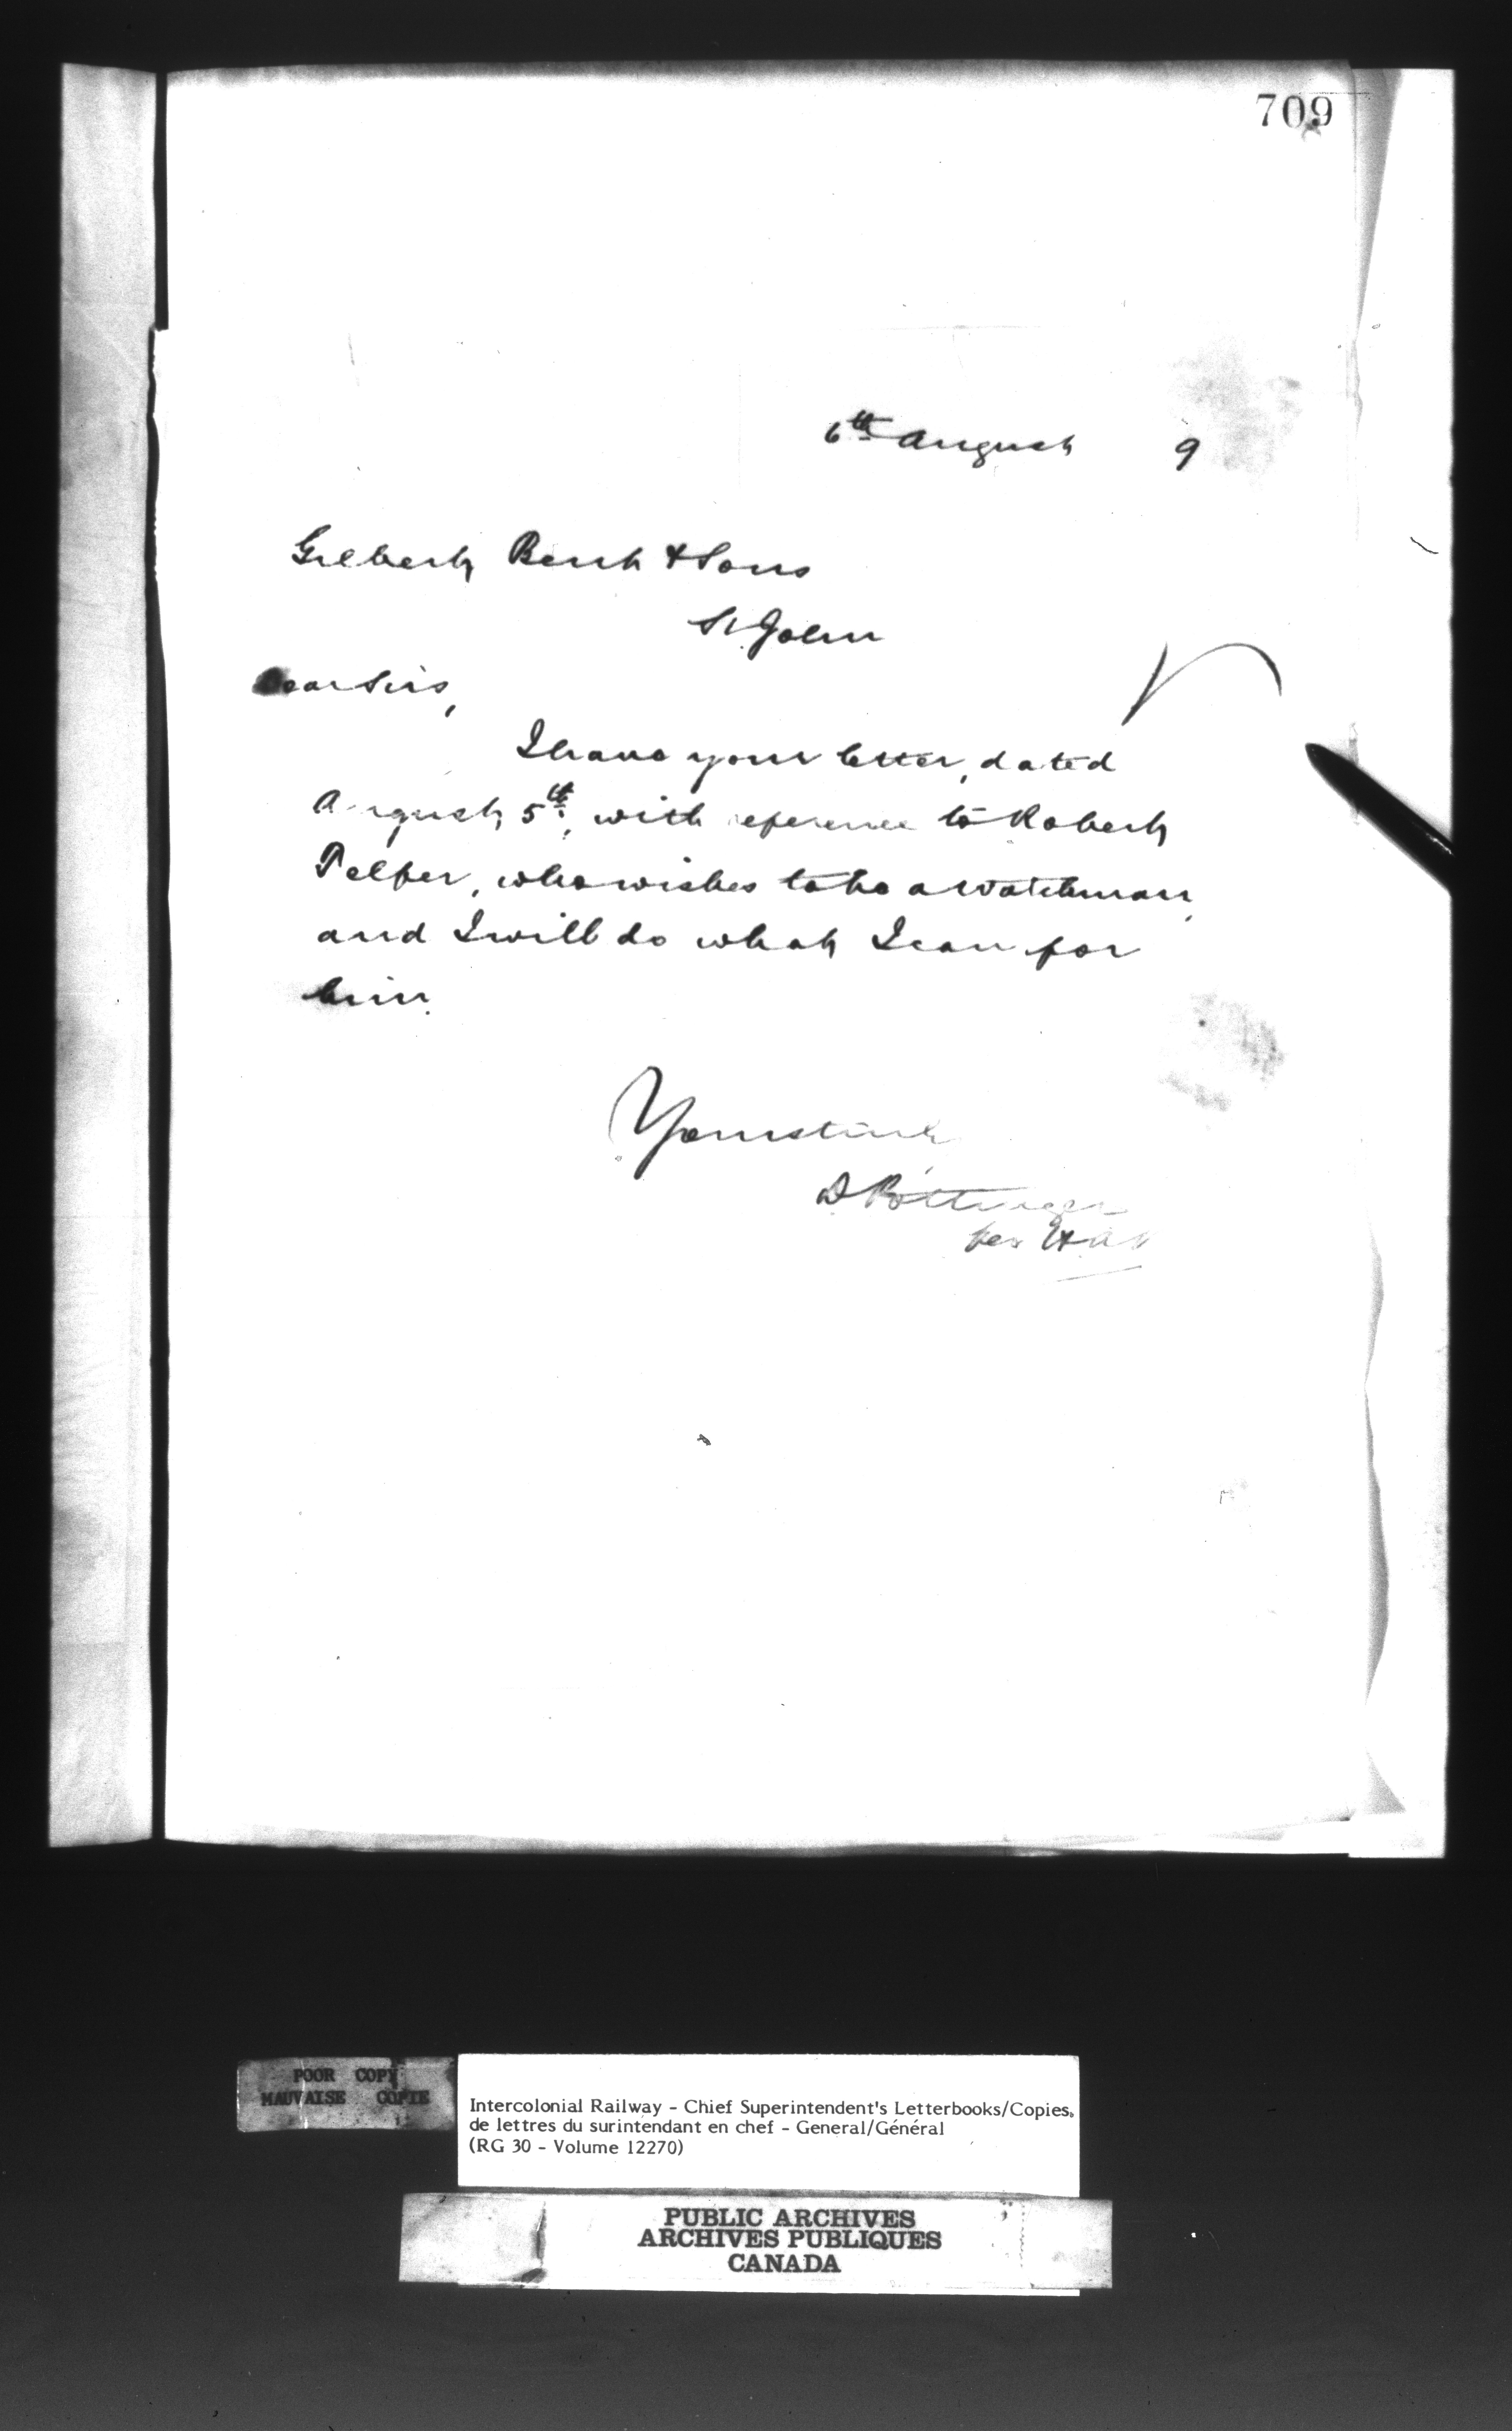 709
6th August 9
Gilbert Bent & Sons
St. John
Dear Sirs,
I have your letter, dated
August 5th, with reference to Robert
Telfer, who wishes to be a watchman,
and I will do what I can for
him.
Yours truly
D Pottinger
per
POOR COPY
MAUVAISE COPIE
Intercolonial Railway - Chief Superintendent's Letterbooks/Copies
de lettres du surintendant en chef - General/Général
(RG 30 - Volume 12270)
PUBLIC ARCHIVES
ARCHIVES PUBLIQUES
CANADA